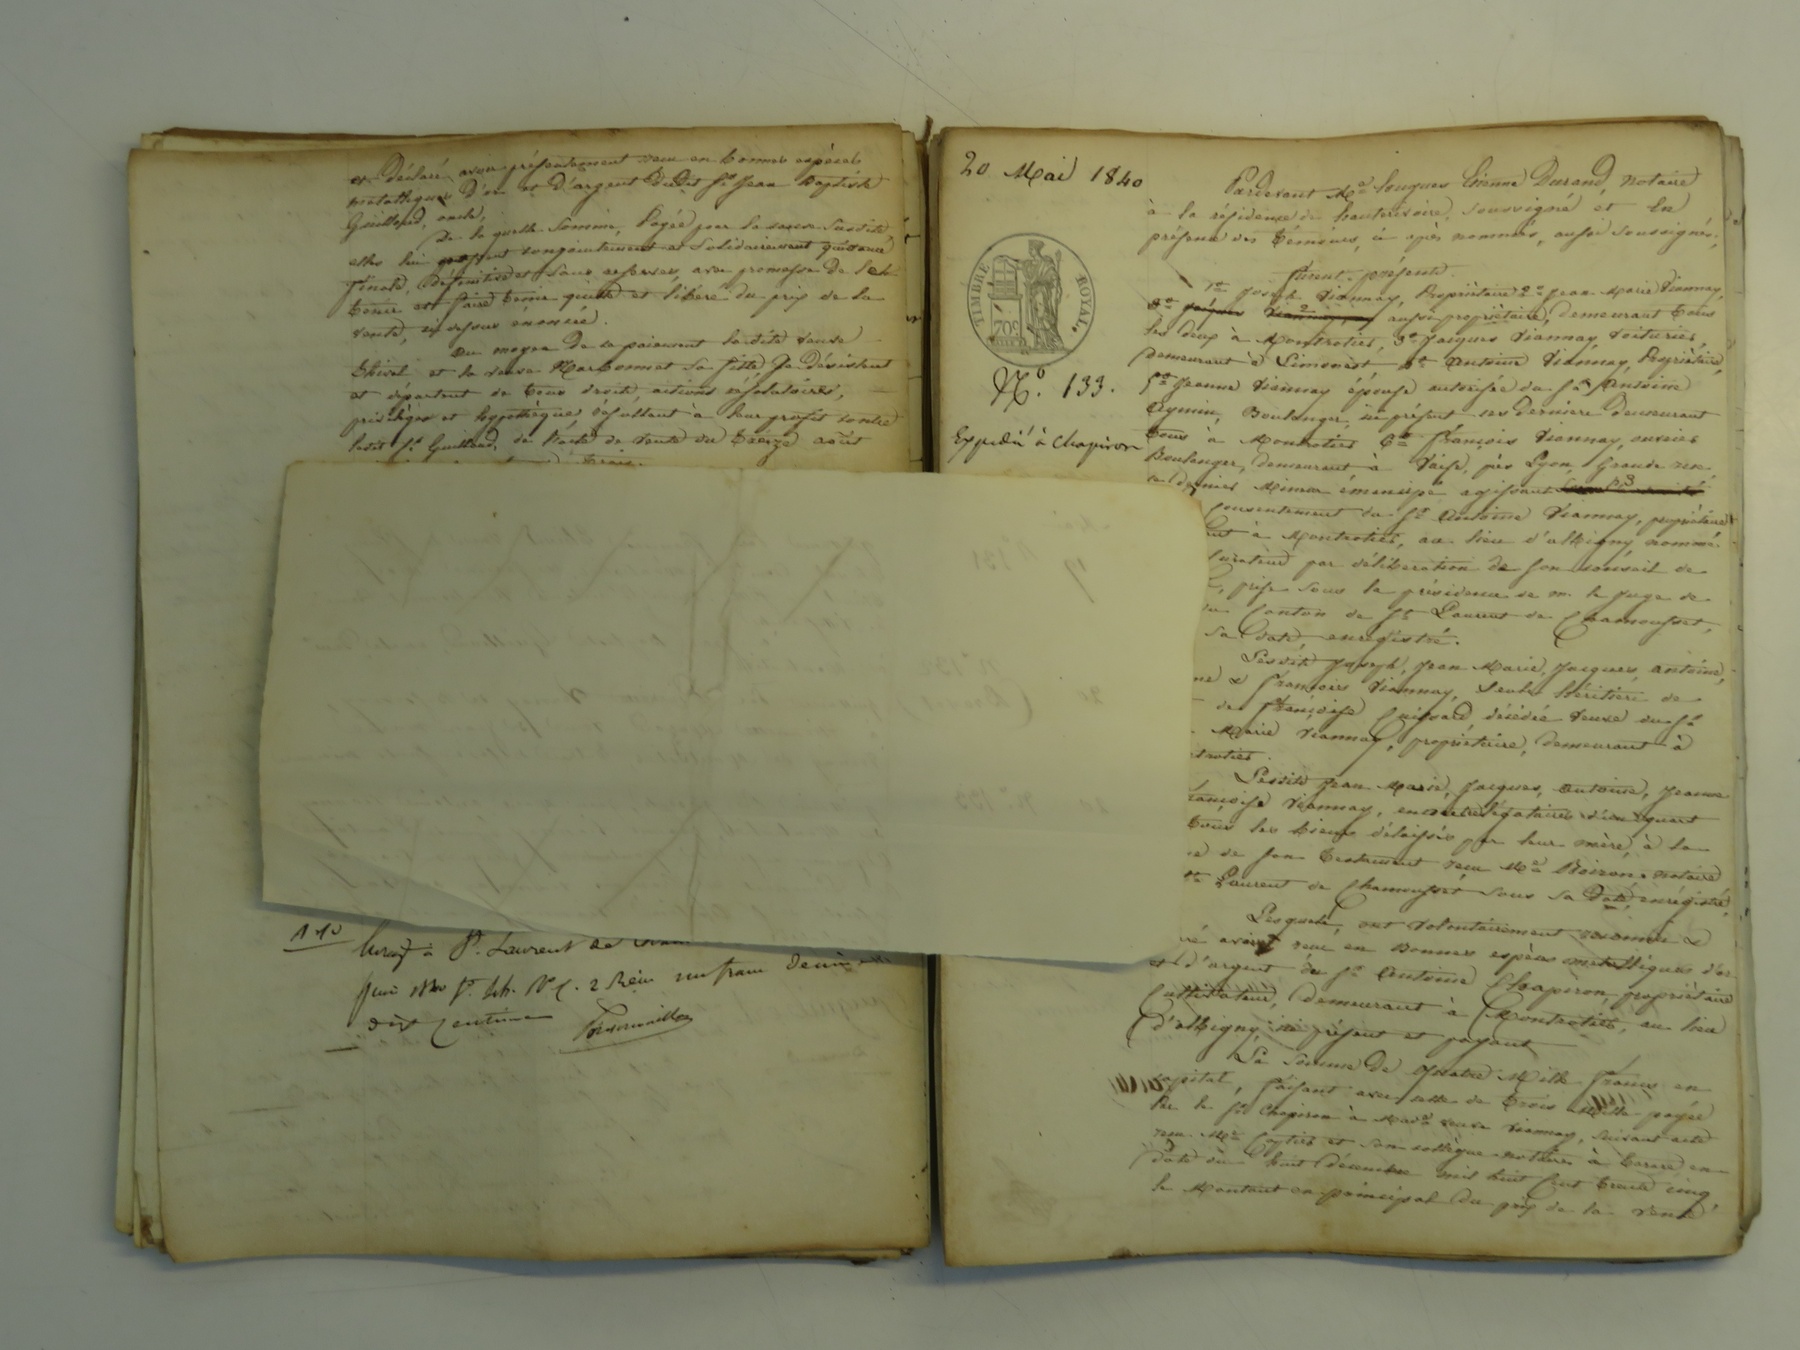 et déclaré avoir présentement reçu en bonnes espèces
métalliques d'or et d'argent dudit Sr Jean Baptiste
Guilloud, oncle,
De la quelle somme, Payée pour la cause susdite,
elles lui passent conjointement et solidairement quittance
finale, définitive et sans reserves, avec promesse de l'en
tenir et faire tenir quitte et libéré du prix de la
vente, ci dessus énoncée.
Au moyen de ce paiement ladite veuve
et la veuve Narbonnat sa fille, se désistent
et départent de tous droits, actions résolutoires,
privilèges et hypothèque, résultant à leur profit contre
ledit Sr Guilloud, de l'acte de vente du treize août
trois.
1 10
à St Laurent de
juin 1840 fo Vo C. 2 Reçu un franc
dix centimes
20 Mai 1840
TIMBRE ROYAL.
70c
No. 133.
Expédié à Chapiron
Pardevant Me Hugues Etienne Durand, notaire
à la résidence de hauterivoire, soussigné et en
présence des témoins, ci après nommés, aussi soussignés;
furent présents.
1o Joseph Viannay, Propriétaire 2o Jean Marie Viannay,
3o Jacques Viannay, aussi propriétaire, demeurant tous
les deux à Montrotier, 3o Jacques Viannay, voiturier,
demeurant à Limonest 4o Antoine Viannay, Propriétaire,
5o Jeanne Viannay épouse autorisée du Sr Antoine
Eymin, Boulanger, ici présent ces derniers demeurant
tous à Montrotier 6o François Viannay, ouvrier
Boulanger, demeurant à Vaise, près Lyon, grande rue,
ce dernier Mineur émancipé agissant
consentement du Sr Antoine Viannay, propriétaire
à Montrotier, au lieu d'albigny, nommé
curateur par délibération de son conseil de
prise sous la présidence de m. le Juge de
du Canton de St Laurent de Chamousset,
sa date, enregistré.
Lesdits Joseph, Jean Marie, Jacques, antoine,
ne & françois Viannay, seuls héritiers de
de françoise Guissard, décédée veuve du Sr
Marie Viannay, propriétaire, demeurant à
Lesdits Jean Marie, Jacques, antoine, Jeanne
Viannay, en outre légataires d'un quart
tous les biens délaissés par leur mère, à la
de son testament reçu Me Boiron notaire
Laurent de Chamousset sous sa date, enregistré,
Lesquels, ont volontairement reconnu &
avoir reçu en Bonnes espèces métalliques d'or
et d'argent du Sr Antoine Chapiron, propriétaire
Cultivateur, demeurant à Montrotier, au lieu
d'albigny, ici présent et payant
La somme de quatre Mille francs en
capital, faisant avec celle de trois Mille payée
Par le Sr Chapiron à veuve Viannay, suivant acte
reçu Me et son collègue notaires à en
date du huit décembre mil huit cent trente cinq
le Montant en principal du prix de la vente